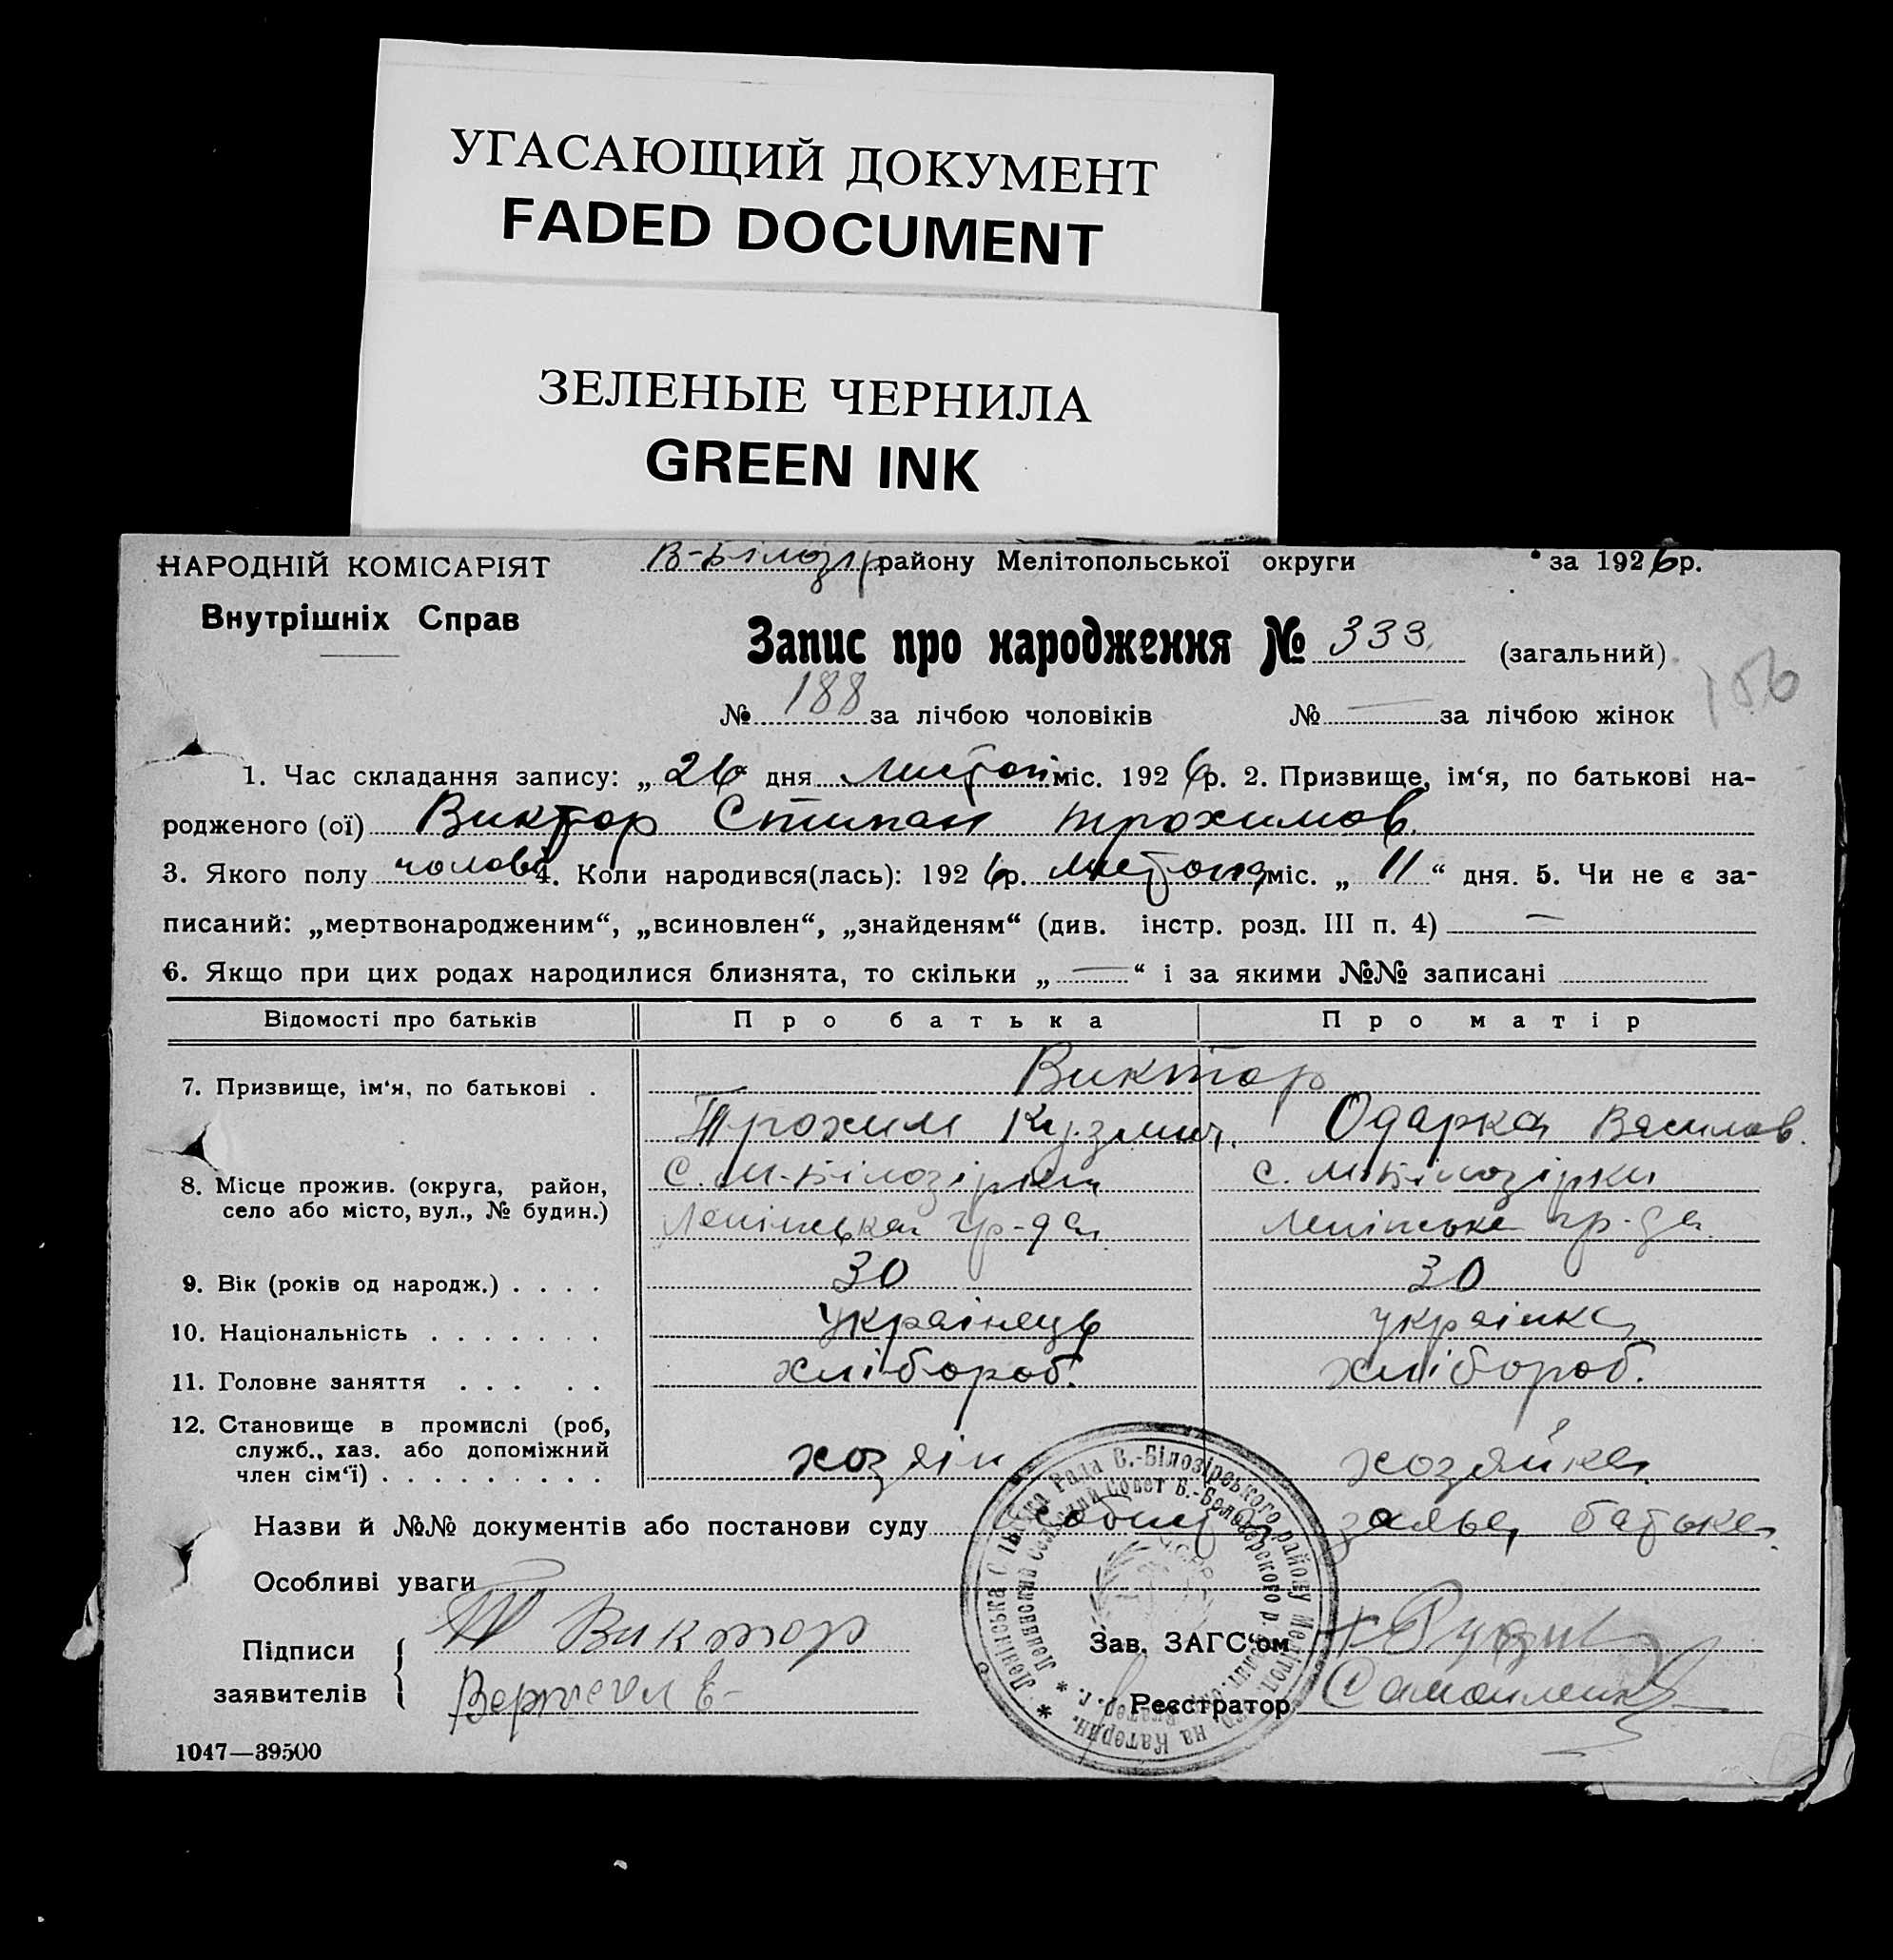 УГАСАЮЩИЙ ДОКУМЕНТ
FADED DOCUMENT
ЗЕЛЕНЫЕ ЧЕРНИЛА
GREEN INK
НАРОДНІЙ КОМІСАРІЯТ
Внутрішніх Справ
В-Білозір району Мелітопольської округи за 1926р.
Запис про народження № 333 (загальний)
156
№ 188 за лічбою чоловіків № — за лічбою жінок
1. Час складання запису: „26 дня листоп міс. 1926р. 2. Призвище, ім‘я, по батькові на-
родженого (ої) Виктор Стипан Трохимов
3. Якого полу чолові 4. Коли народився(лась): 1926р. листопад міс. „11“ дня. 5. Чи не є за-
писаний: „мертвонародженим“, „всиновлен“, „знайденям“ (див. інстр. розд. III п. 4) —
6. Якщо при цих родах народилися близнята, то скільки „—“ і за якими №№ записані
Відомості про батьків Про батька Про матір
7. Призвище, ім‘я, по батькові . Виктор
Трохим Кузмич. Одарка Василов.
8. Місце прожив. (округа, район, село або місто, вул., № будин.) С. М-Білозірки с. М-Білозірки
Ленінська гр-да Ленінська гр-да
9. Вік (років од народж.) . . . . 30 30
10. Національність . . . . . . . українець українка
11. Головне заняття . . . . . хлібороб. хлібороб.
12. Становище в промислі (роб, служб., хаз. або допоміжний член сім‘ї) . . . . . . . . . хозяін хозяйка
Назви й №№ документів або постанови суду заява батька
Особливі уваги
Підписи заявителів
Т Виктор
Зав. ЗАГС‘ом
Реєстратор Самойленко
* Ленінська Сільська Рада В.-Білозірського району Мелітоп. окр. на Катерин.
Ленинский Сельский Совет В.-Белозерского р.
1047—39500